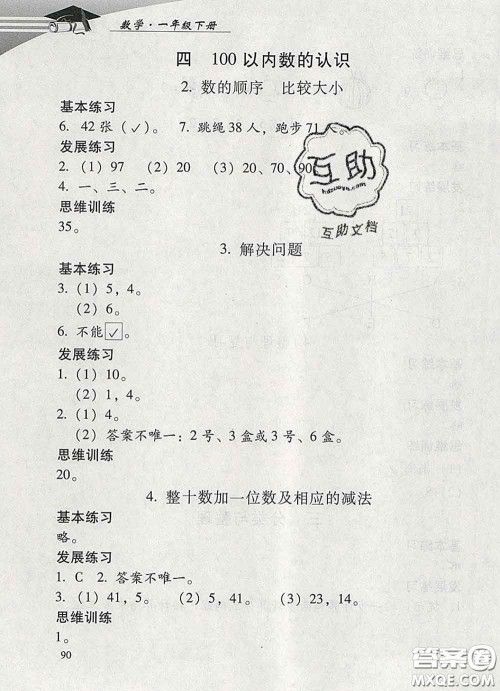 数学·一年级下册
四 100以内数的认识
2. 数的顺序 比较大小
基本练习
6. 42张（✓）。 7. 跳绳38人，跑步71
发展练习
2.（1）97 （2）20 （3）20、70、90
4. 一、三、二。
思维训练
35。
互助
hdzuoye.com
互助文档
3. 解决问题
基本练习
3.（1）5，4。
（2）6。
6. 不能☑。
发展练习
1.（1）10。
（2）1，4。
2.（1）4。
（2）答案不唯一：2号、3盒或3号、6盒。
思维训练
20。
4. 整十数加一位数及相应的减法
基本练习
略。
发展练习
1. C 2. 答案不唯一。
3.（1）41，5。 （2）5，41。 （3）23，14。
思维训练
1。
90
答案圈
MXQE.COM